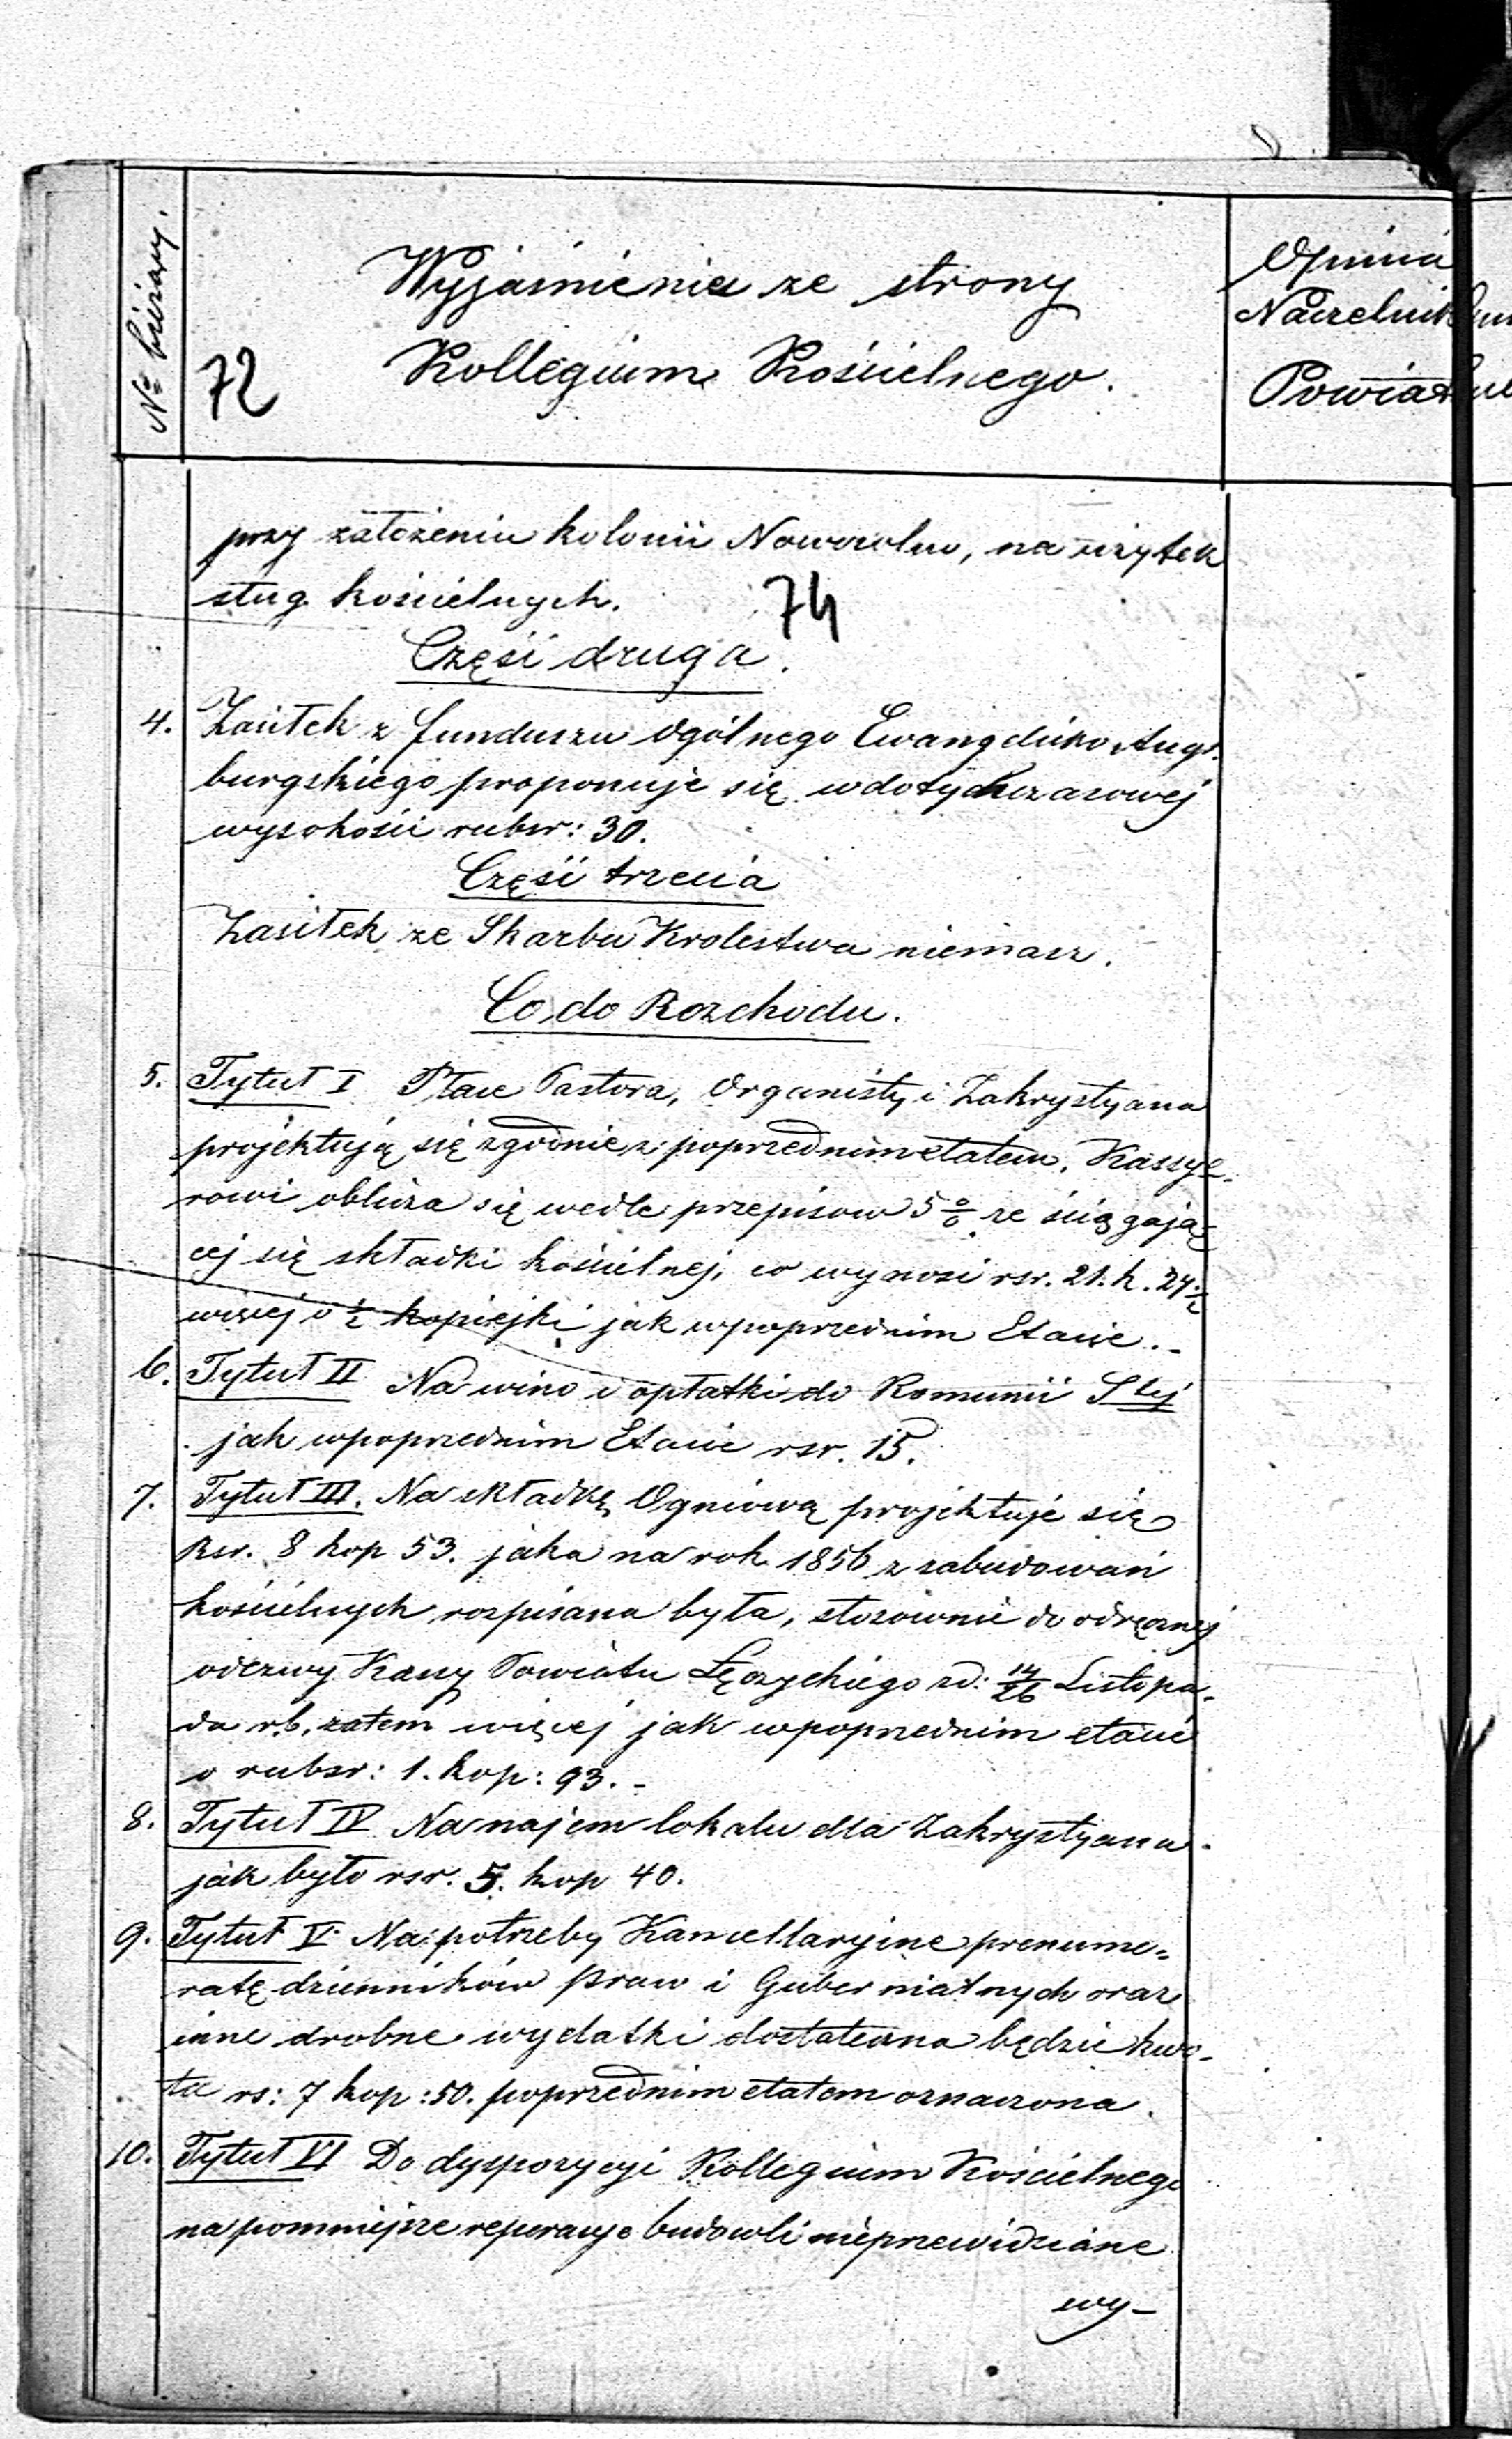 № bieżący.
72
Wyjaśnienia ze strony
Kollegium Kościelnego.
Opinia
Naczelnik
Powiat
przy założeniu kolonii Nowosolno, na użytek
sług kościelnych.
74
Części druga.
4. Zasiłek z funduszu Ogólnego Ewangelicko Augs-
burgskiego proponuje się w dotychczasowej
wysokości rubsr: 30.
Części trzecia
Zasiłek ze Skarbu Krolestwa niemasz.
Co do Rozchodu.
5. Tytuł I Płace Pastora, Organisty i Zakrystyana
projektują się zgodnie z poprzednim etatem. Kassye-
rowi oblicza się wedle przepisow 5 % ze ściągają
cej się składki kościelnej, co wynosi rsr. 21. k. 24 ½
więcej o ½ kopiejki jak w poprzednim Etacie. -
6. Tytuł II Na wino i opłatki do Komunii Stej
jak w poprzednim Etacie rsr. 15.
7. Tytuł III. Na składkę Ogniową projektuje się
Rsr. 8 kop 53. jaka na rok 1856 z zabudowań
kościelnych rozpisana była, stosownie do odręcznej
odezwy Kassy Powiatu Łęczyckiego zd: 14/26 Listopa-
da r.b. zatem więcej jak w poprzednim etacie
o rubsr: 1. kop: 93. -
8. Tytuł IV Na najem lokalu dla Zakrystyana
jak było rsr. 5. kop 40.
9. Tytuł V. Na potrzeby Kancellaryine prenume=
ratę dzienników praw i Gubernialnych oraz
inne drobne wydatki dostateczna będzie kwo-
ta rs: 7 kop: 50. poprzednim etatem oznaczona.
10. Tytuł VI Do dyspozycyi Kollegium Kościelnego
na pomniejsze reperacye budowli nieprzewidziane
wy-